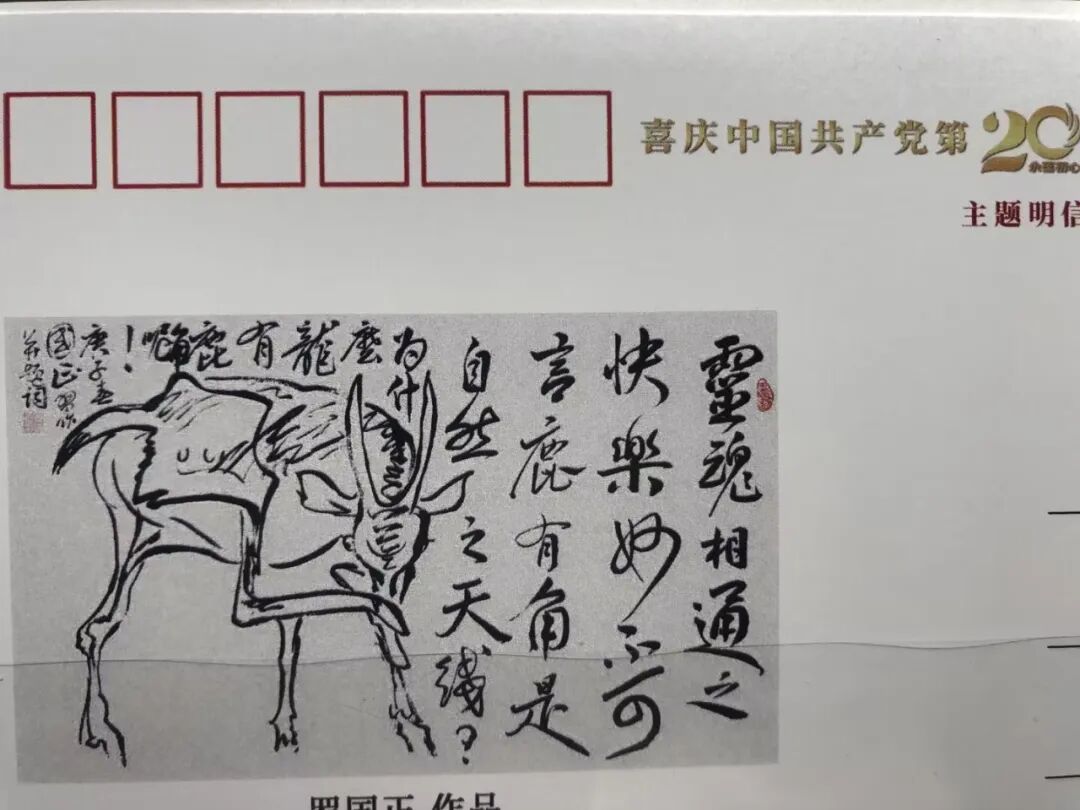 喜庆中国共产党第20
主题明信
靈魂相通之
快樂妙不可
言鹿有角是
自然之天綫?
为什
麼
龍
有
鹿
角呢
!
庚子春
國正习作
并题词
罗国正 作品